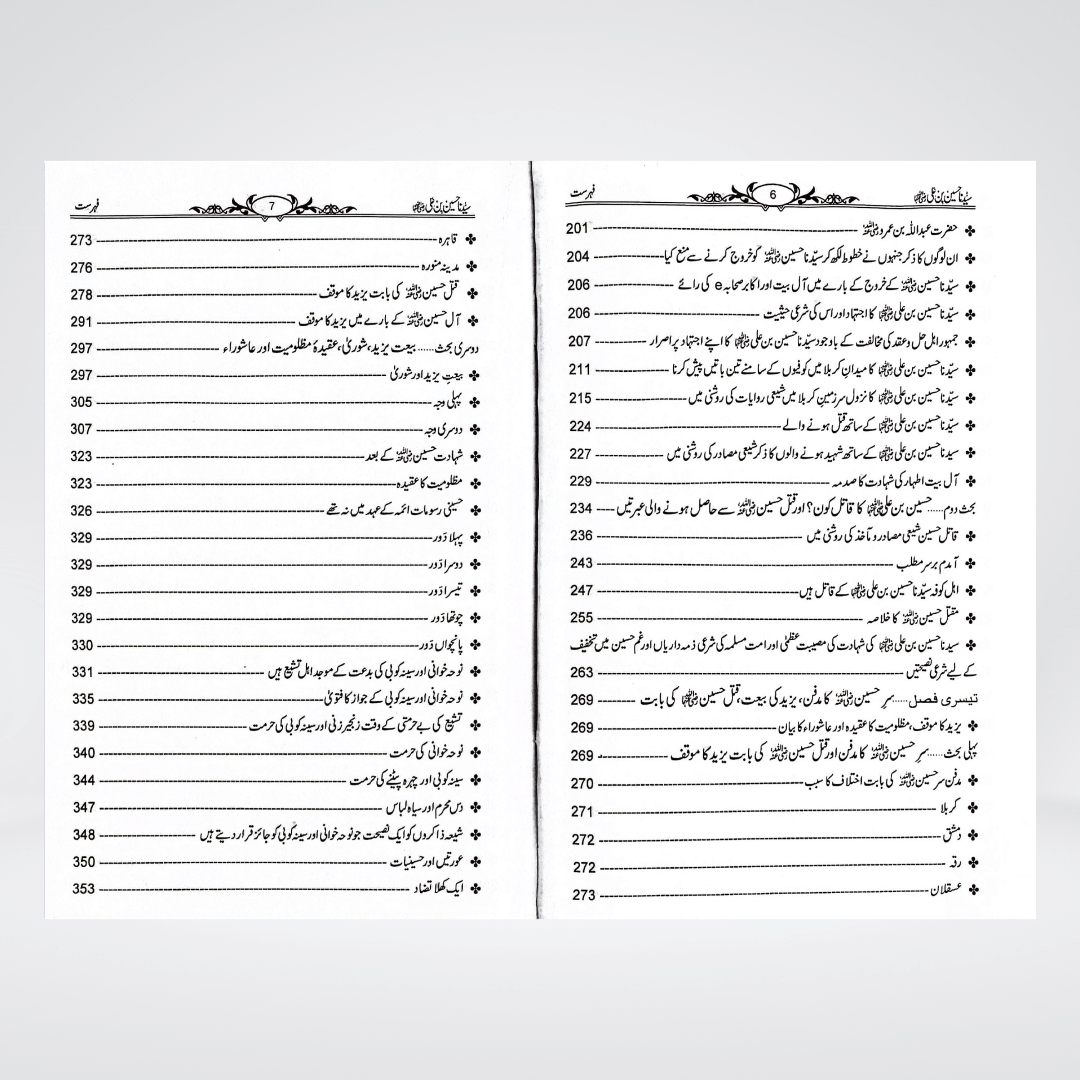 سیّدنا حسین بن علی رضی اللہ عنہما 6 فہرست
✤ حضرت عبداللہ بن عمرو رضی اللہ عنہ ---------- 201
✤ ان لوگوں کا ذکر جنہوں نے خطوط لکھ کر سیّدنا حسین رضی اللہ عنہ کو خروج کرنے سے منع کیا ---------- 204
✤ سیّدنا حسین رضی اللہ عنہ کے خروج کے بارے میں آل بیت اور اکابر صحابہ e کی رائے ---------- 206
✤ سیّدنا حسین بن علی رضی اللہ عنہما کا اجتہاد اور اس کی شرعی حیثیت ---------- 206
✤ جمہور اہل حل و عقد کی مخالفت کے باوجود سیّدنا حسین بن علی رضی اللہ عنہما کا اپنے اجتہاد پر اصرار ---------- 207
✤ سیّدنا حسین بن علی رضی اللہ عنہما کا میدانِ کربلا میں کوفیوں کے سامنے تین باتیں پیش کرنا ---------- 211
✤ سیّدنا حسین بن علی رضی اللہ عنہما کا نزول سرزمینِ کربلا میں شیعی روایات کی روشنی میں ---------- 215
✤ سیّدنا حسین بن علی رضی اللہ عنہما کے ساتھ قتل ہونے والے ---------- 224
✤ سیدنا حسین بن علی رضی اللہ عنہما کے ساتھ شہید ہونے والوں کا ذکر شیعی مصادر کی روشنی میں ---------- 227
✤ آل بیت اطہار کی شہادت کا صدمہ ---------- 229
بحث دوم...... حسین بن علی رضی اللہ عنہما کا قاتل کون؟ اور قتل حسین رضی اللہ عنہ سے حاصل ہونے والی عبرتیں ---------- 234
✤ قاتل حسین شیعی مصادر و مآخذ کی روشنی میں ---------- 236
✤ آمدم برسر مطلب ---------- 243
✤ اہل کوفہ سیّدنا حسین بن علی رضی اللہ عنہما کے قاتل ہیں ---------- 247
✤ مقتل حسین رضی اللہ عنہ کا خلاصہ ---------- 255
✤ سیدنا حسین بن علی رضی اللہ عنہما کی شہادت کی مصیبت عظمیٰ اور امت مسلمہ کی شرعی ذمہ داریاں اور غم حسین میں تخفیف
کے لیے شرعی نصیحتیں ---------- 263
تیسری فصل...... سرِ حسین رضی اللہ عنہ کا مدفن، یزید کی بیعت، قتل حسین رضی اللہ عنہ کی بابت ---------- 269
✤ یزید کا موقف، مظلومیت کا عقیدہ اور عاشوراء کا بیان ---------- 269
پہلی بحث...... سرِ حسین رضی اللہ عنہ کا مدفن اور قتل حسین رضی اللہ عنہ کی بابت یزید کا موقف ---------- 269
✤ مدفن سر حسین رضی اللہ عنہ کی بابت اختلاف کا سبب ---------- 270
✤ کربلا ---------- 271
✤ دمشق ---------- 272
✤ رقہ ---------- 272
✤ عسقلان ---------- 273
سیّدنا حسین بن علی رضی اللہ عنہما 7 فہرست
✤ قاہرہ ---------- 273
✤ مدینہ منورہ ---------- 276
✤ قتل حسین رضی اللہ عنہ کی بابت یزید کا موقف ---------- 278
✤ آل حسین رضی اللہ عنہ کے بارے میں یزید کا موقف ---------- 291
دوسری بحث...... بیعت یزید، شوریٰ، عقیدۂ مظلومیت اور عاشوراء ---------- 297
✤ بیعتِ یزید اور شوریٰ ---------- 297
✤ پہلی وجہ ---------- 305
✤ دوسری وجہ ---------- 307
✤ شہادت حسین رضی اللہ عنہ کے بعد ---------- 323
✤ مظلومیت کا عقیدہ ---------- 323
✤ حسینی رسومات ائمہ کے عہد میں نہ تھے ---------- 326
✤ پہلا دَور ---------- 329
✤ دوسرا دَور ---------- 329
✤ تیسرا دَور ---------- 329
✤ چوتھا دَور ---------- 329
✤ پانچواں دَور ---------- 330
✤ نوحہ خوانی اور سینہ کوبی کی بدعت کے موجد اہل تشیع ہیں ---------- 331
✤ نوحہ خوانی اور سینہ کوبی کے جواز کا فتویٰ ---------- 335
✤ تشیع کی بے حرمتی کے وقت زنجیر زنی اور سینہ کوبی کی حرمت ---------- 339
✤ نوحہ خوانی کی حرمت ---------- 340
✤ سینہ کوبی اور چہرہ پیٹنے کی حرمت ---------- 344
✤ دس محرم اور سیاہ لباس ---------- 347
✤ شیعہ ذاکروں کو ایک نصیحت جو نوحہ خوانی اور سینہ کوبی کو جائز قرار دیتے ہیں ---------- 348
✤ عورتیں اور حسینیات ---------- 350
✤ ایک کھلا تضاد ---------- 353